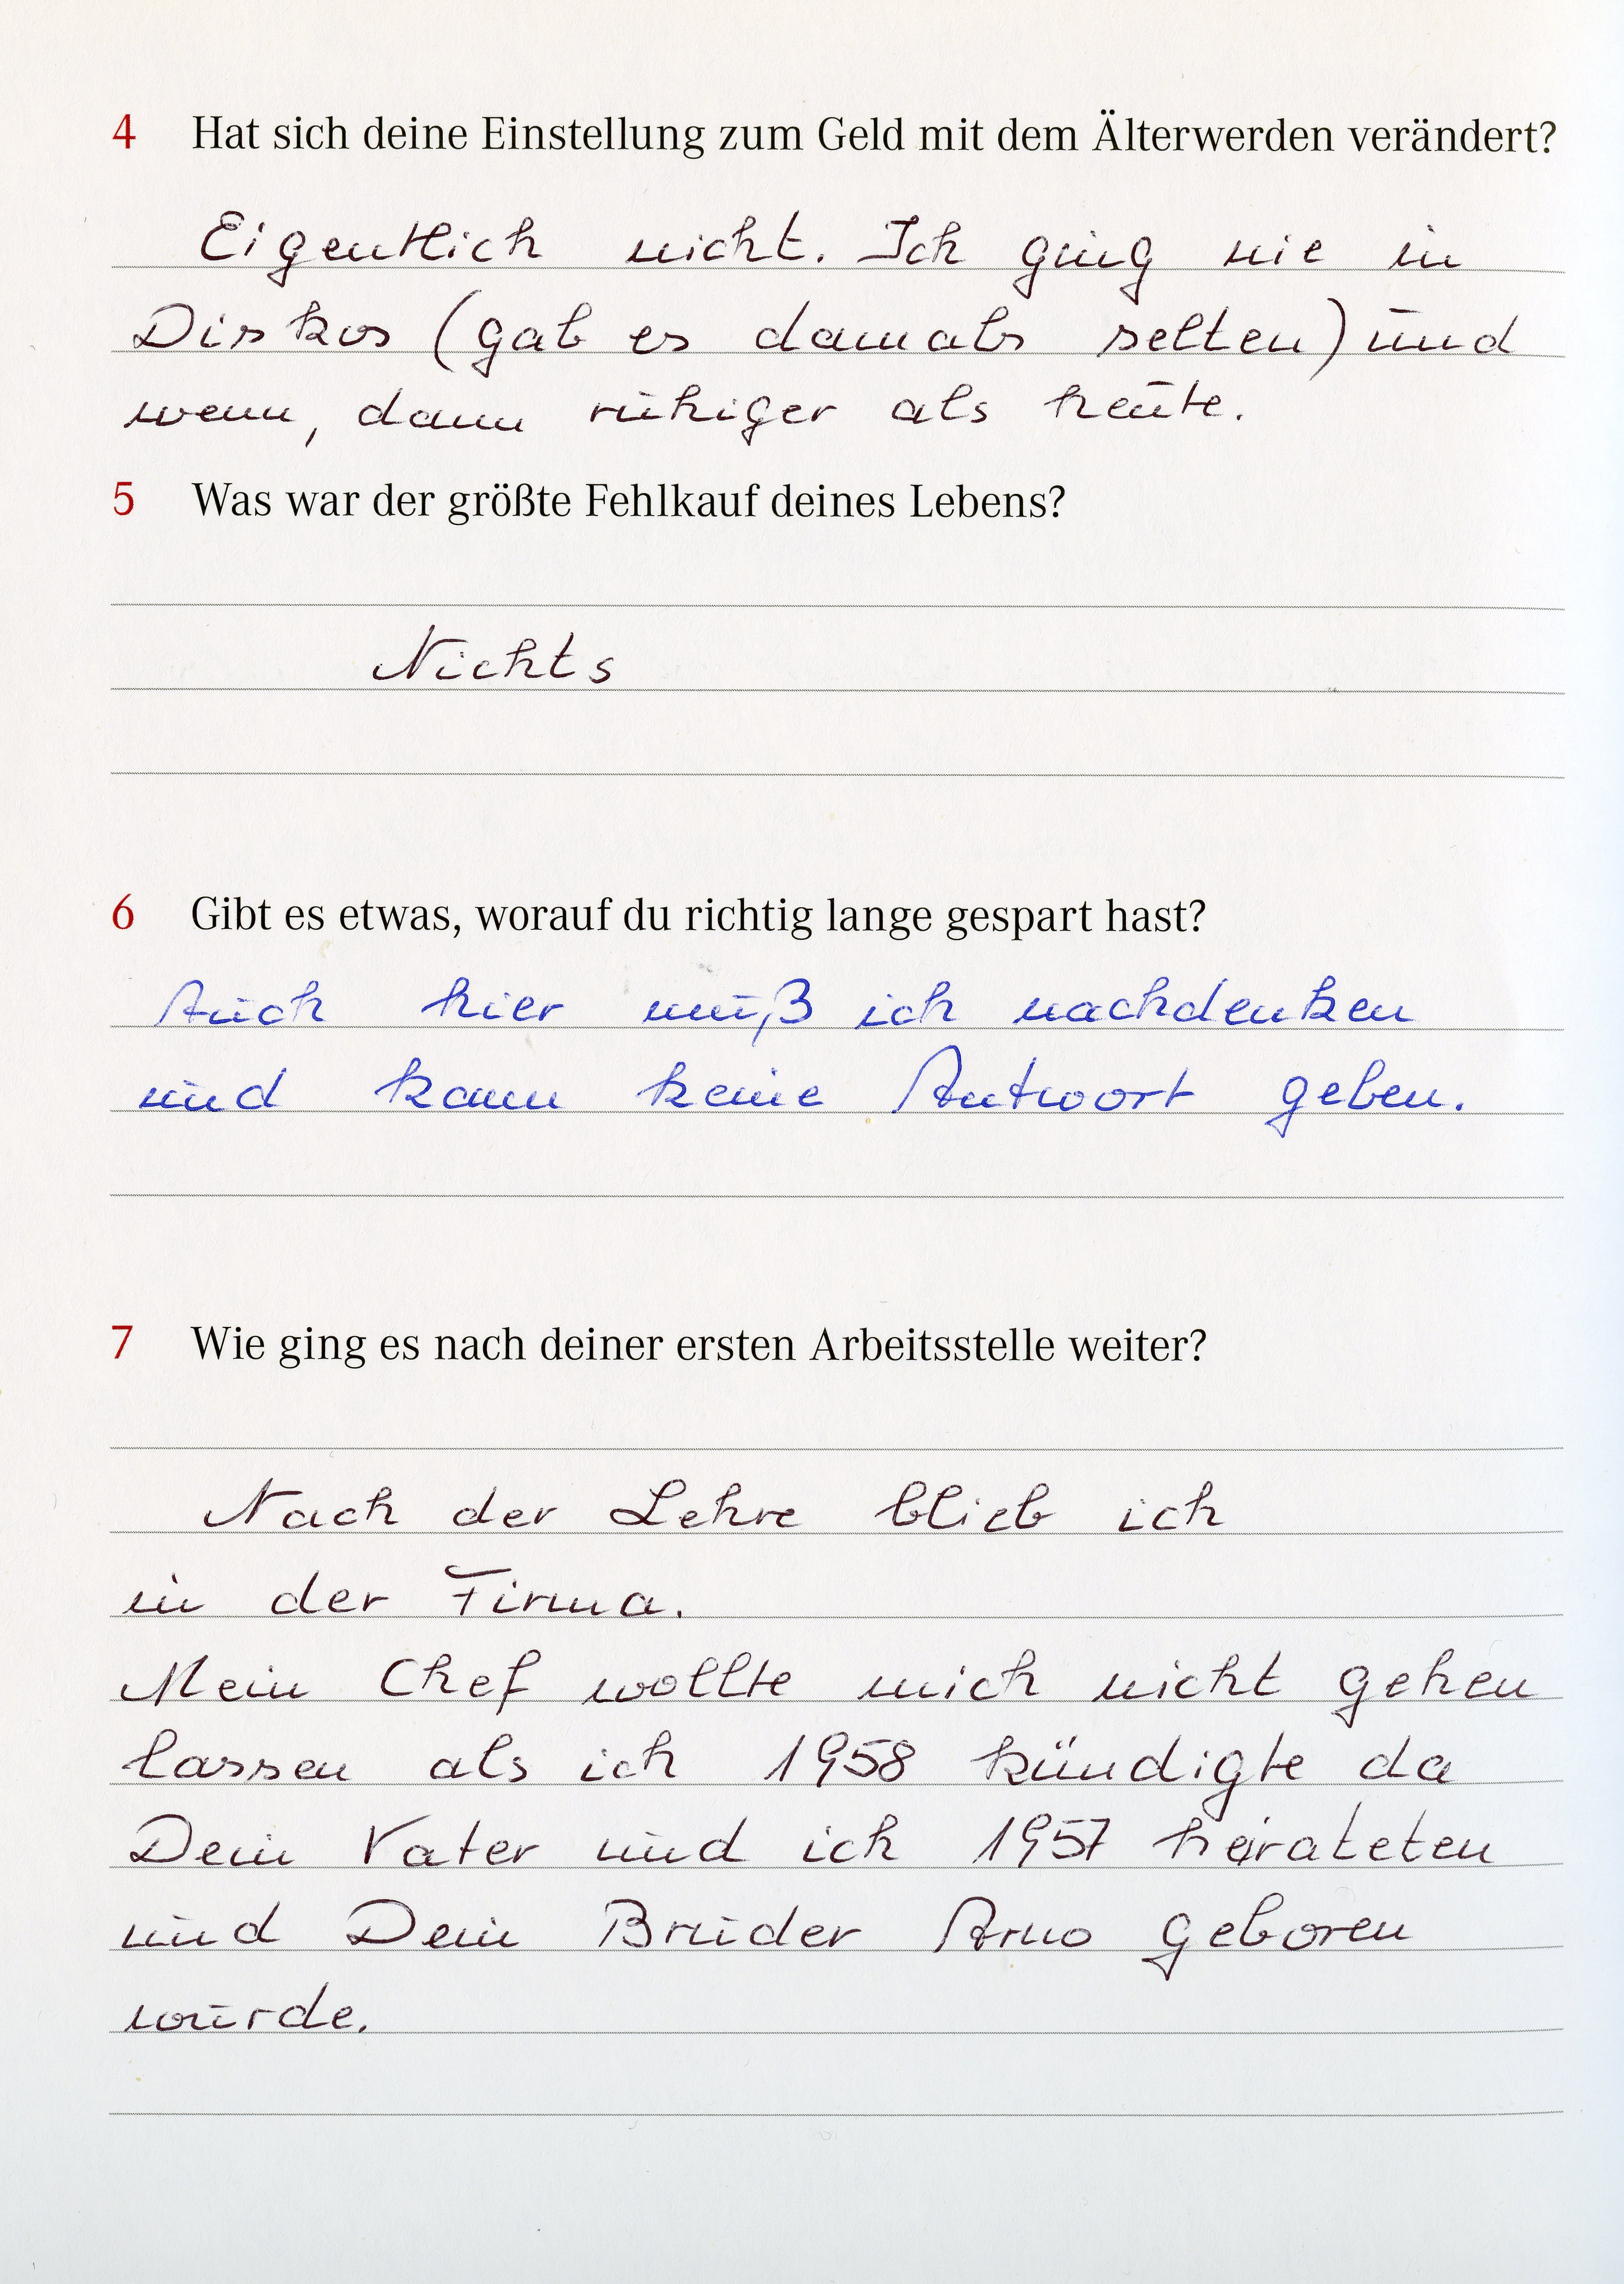 4 Hat sich deine Einstellung zum Geld mit dem Älterwerden verändert?
Eigentlich nicht. Ich ging nie in
Diskos (gab es damals selten) und
wenn, dann ruhiger als heute.
5 Was war der größte Fehlkauf deines Lebens?
Nichts
6 Gibt es etwas, worauf du richtig lange gespart hast?
Auch hier muß ich nachdenken
und kann keine Antwort geben.
7 Wie ging es nach deiner ersten Arbeitsstelle weiter?
Nach der Lehre blieb ich
in der Firma.
Mein Chef wollte mich nicht gehen
lassen als ich 1958 kündigte da
Dein Vater und ich 1957 heirateten
und Dein Bruder Arno geboren
wurde.